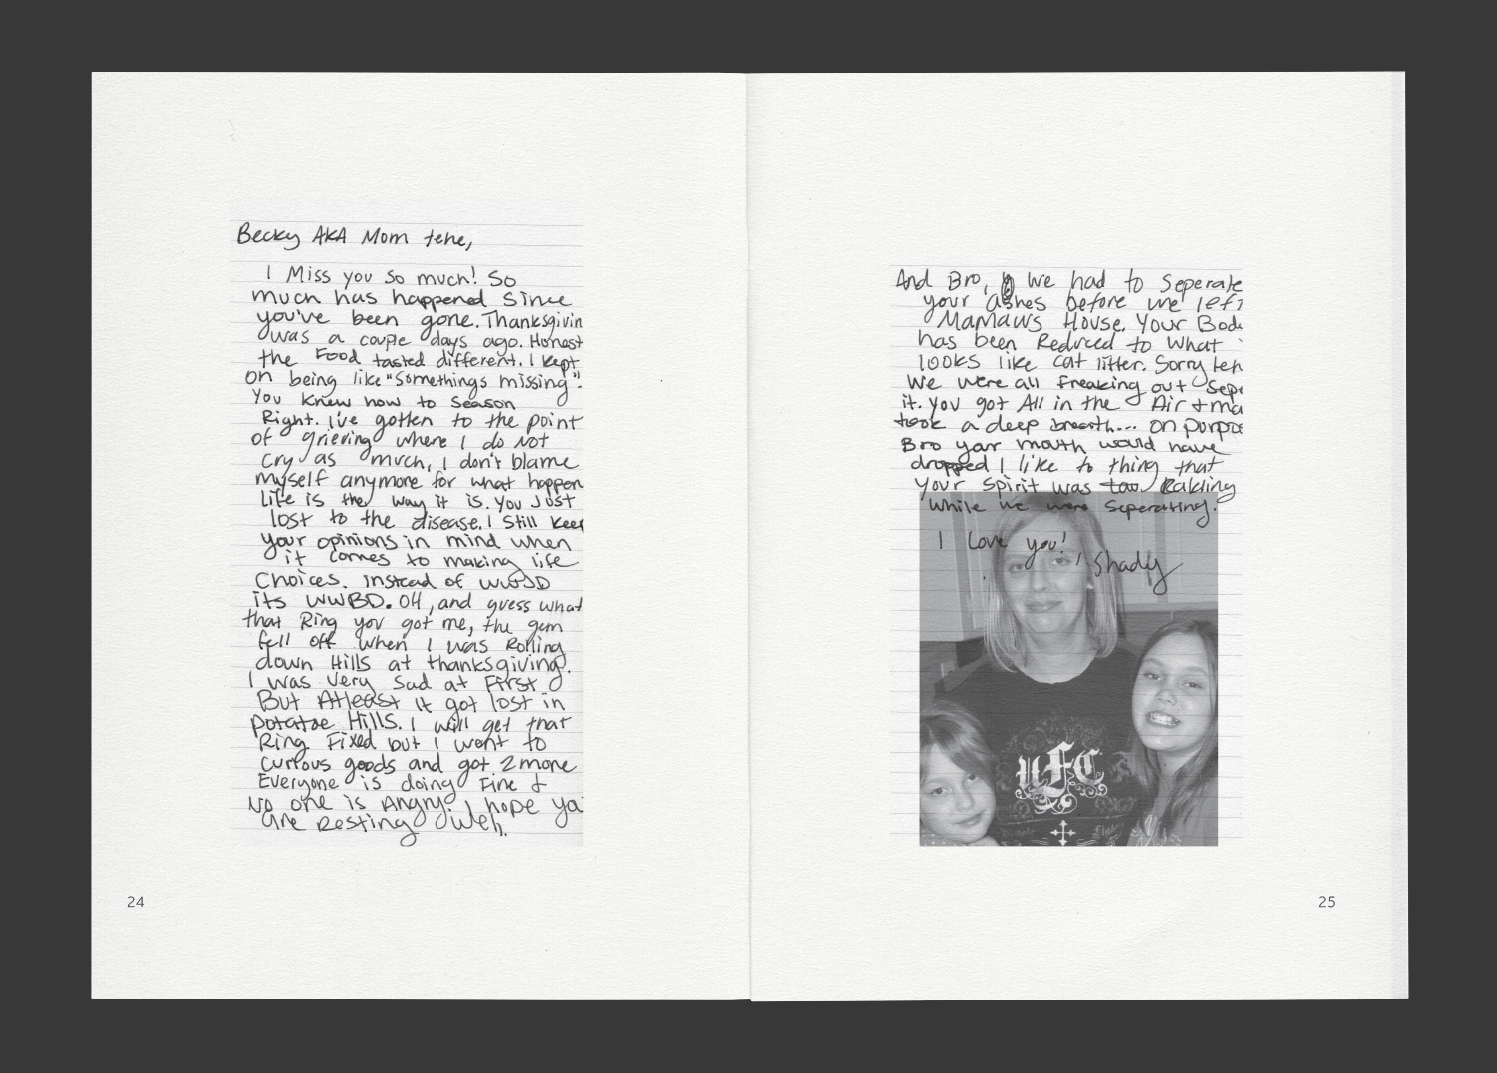 Becky AKA Mom tehe,
I Miss you so much! So
much has happened since
you've been gone. Thanksgivin
was a couple days ago. Honest
the Food tasted different. I kept
on being like "Somethings missing".
You knew how to season
Right. I've gotten to the point
of grieving where I do not
cry as much, I don't blame
myself anymore for what happen
life is the way it is. You Just
lost to the disease. I still keep
your opinions in mind when
it comes to making life
Choices. Instead of WWJD
its WWBD. OH, and guess what
that Ring you got me, the gem
fell off when I was Rolling
down Hills at thanksgiving.
I was very sad at First
But Atleast it got lost in
potatoe Hills. I will get that
Ring Fixed but I went to
curious goods and got 2 more
Everyone is doing Fine &
No one is Angry. I hope ya
are Resting Well.
24
And Bro, we had to Seperate
your Ashes before we left
Mamaws House. Your Bod
has been Reduced to What
looks like cat litter. Sorry teh
We were all freaking out sepe
it. you got All in the Air + ma
took a deep breath... on purpo
Bro your mouth would have
dropped I like to thing that
your spirit was too Ralding
while we were seperating.
I Love you!
, Shady
UFC
25